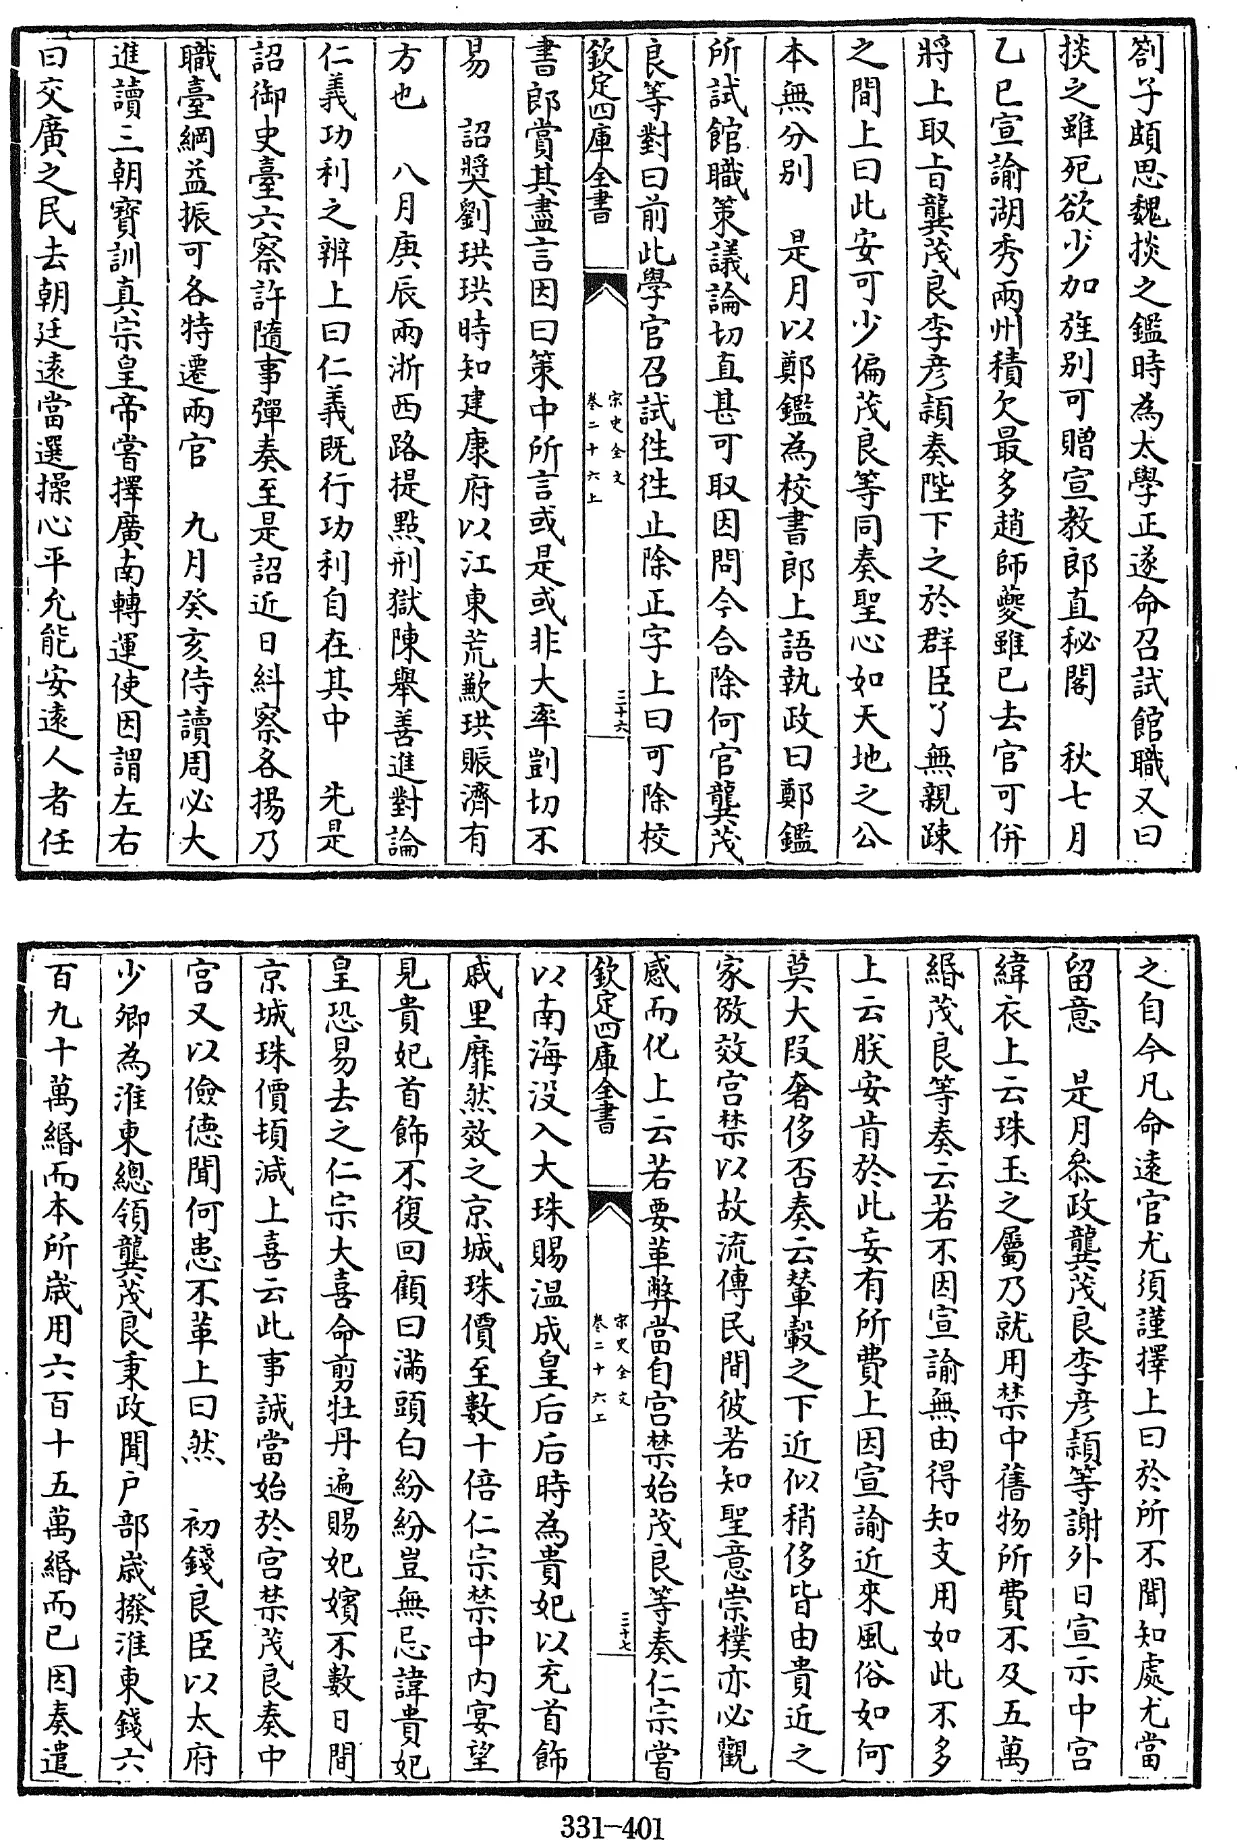 劄子頗思魏掞之鑑時為太學正遂命召試館職又曰
掞之雖死欲少加旌别可贈宣教郎直秘閣　秋七月
乙巳宣諭湖秀兩州積欠最多趙師夔雖已去官可併
將上取旨龔茂良李彦頴奏陛下之於群臣了無親疎
之間上曰此安可少偏茂良等同奏聖心如天地之公
本無分别　是月以鄭鑑為校書郎上語執政曰鄭鑑
所試館職策議論切直甚可取因問今合除何官龔茂
良等對曰前此學官召試徃徃止除正字上曰可除校
欽定四庫全書
宋史全文
卷二十六上
三十六
書郎賞其盡言因曰策中所言或是或非大率剴切不
易　詔奬劉珙珙時知建康府以江東荒歉珙賑濟有
方也　八月庚辰兩浙西路提點刑獄陳舉善進對論
仁義功利之辨上曰仁義既行功利自在其中　先是
詔御史臺六察許隨事彈奏至是詔近日糾察各揚乃
職臺綱益振可各特遷兩官　九月癸亥侍讀周必大
進讀三朝寳訓真宗皇帝嘗擇廣南轉運使因謂左右
曰交廣之民去朝廷遠當選操心平允能安遠人者任
之自今凡命遠官尤須謹擇上曰於所不聞知處尤當
留意　是月叅政龔茂良李彦頴等謝外日宣示中宫
緯衣上云珠玉之屬乃就用禁中舊物所費不及五萬
緡茂良等奏云若不因宣諭無由得知支用如此不多
上云朕安肯於此妄有所費上因宣諭近來風俗如何
莫大段奢侈否奏云輦轂之下近似稍侈皆由貴近之
家倣效宫禁以故流傳民間彼若知聖意崇樸亦必觀
感而化上云若要革弊當自宫禁始茂良等奏仁宗嘗
欽定四庫全書
宋史全文
卷二十六上
三十七
以南海没入大珠賜温成皇后后時為貴妃以充首飾
戚里靡然效之京城珠價至數十倍仁宗禁中内宴望
見貴妃首飾不復回顧曰滿頭白紛紛豈無忌諱貴妃
皇恐易去之仁宗大喜命剪牡丹遍賜妃嬪不數日間
京城珠價頓減上喜云此事誠當始於宫禁茂良奏中
宫又以儉德聞何患不革上曰然　初錢良臣以太府
少卿為淮東總領龔茂良秉政聞户部歳撥淮東錢六
百九十萬緡而本所歳用六百十五萬緡而已因奏遣
331-401